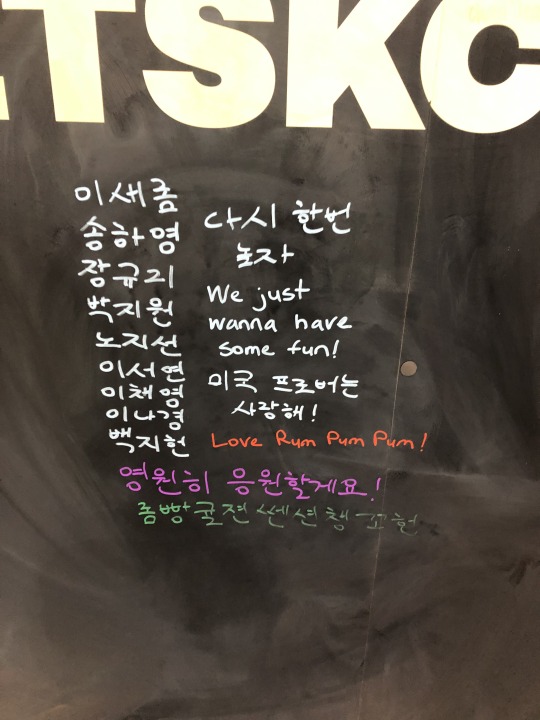 TSKC
이새롬
송하영
장규리
박지원
노지선
이서연
이채영
이나경
백지헌
다시 한번
놀자
We just
wanna have
some fun!
미국 프로버는
사랑해!
Love Rum Pum Pum!
영원히 응원할게요!
롬빵귤젼쎈션챙꼬헌